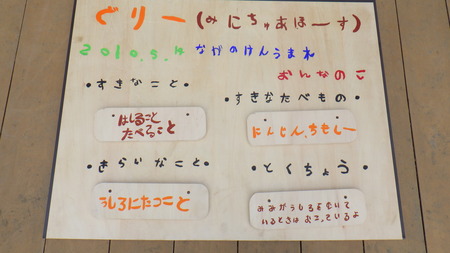 ぐりー(みにちゅあほーす)
2010.9.14 ながのけんうまれ
おんなのこ
・すきなこと・
はしること
たべること
・すきなたべもの・
にんじん、ちもしー
・きらいなこと・
うしろにたつこと
・とくちょう・
みみがうしろをむいて
いるときはおこっているよ